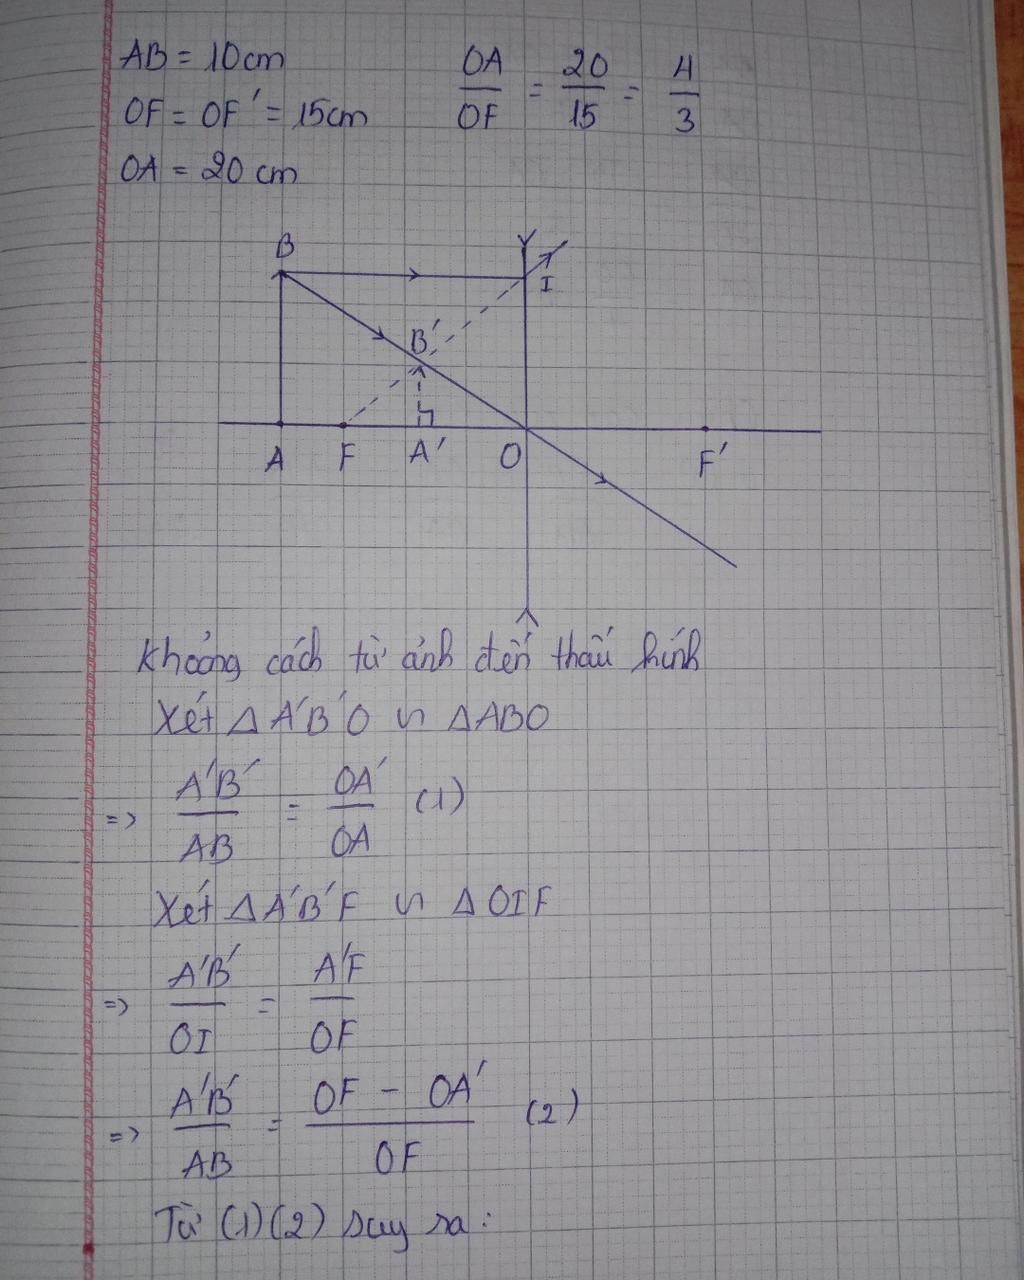 AB = 10cm
OF = OF' = 15cm
OA = 20 cm
OA/OF = 20/15 = 4/3
B
I
B'
A F A' O F'
Khoảng cách từ ảnh đến thấu kính
Xét Δ A'B'O ∽ ΔABO
=> A'B'/AB = OA'/OA (1)
Xét ΔA'B'F ∽ ΔOIF
=> A'B'/OI = A'F/OF
=> A'B'/AB = OF - OA'/OF (2)
Từ (1)(2) suy ra: